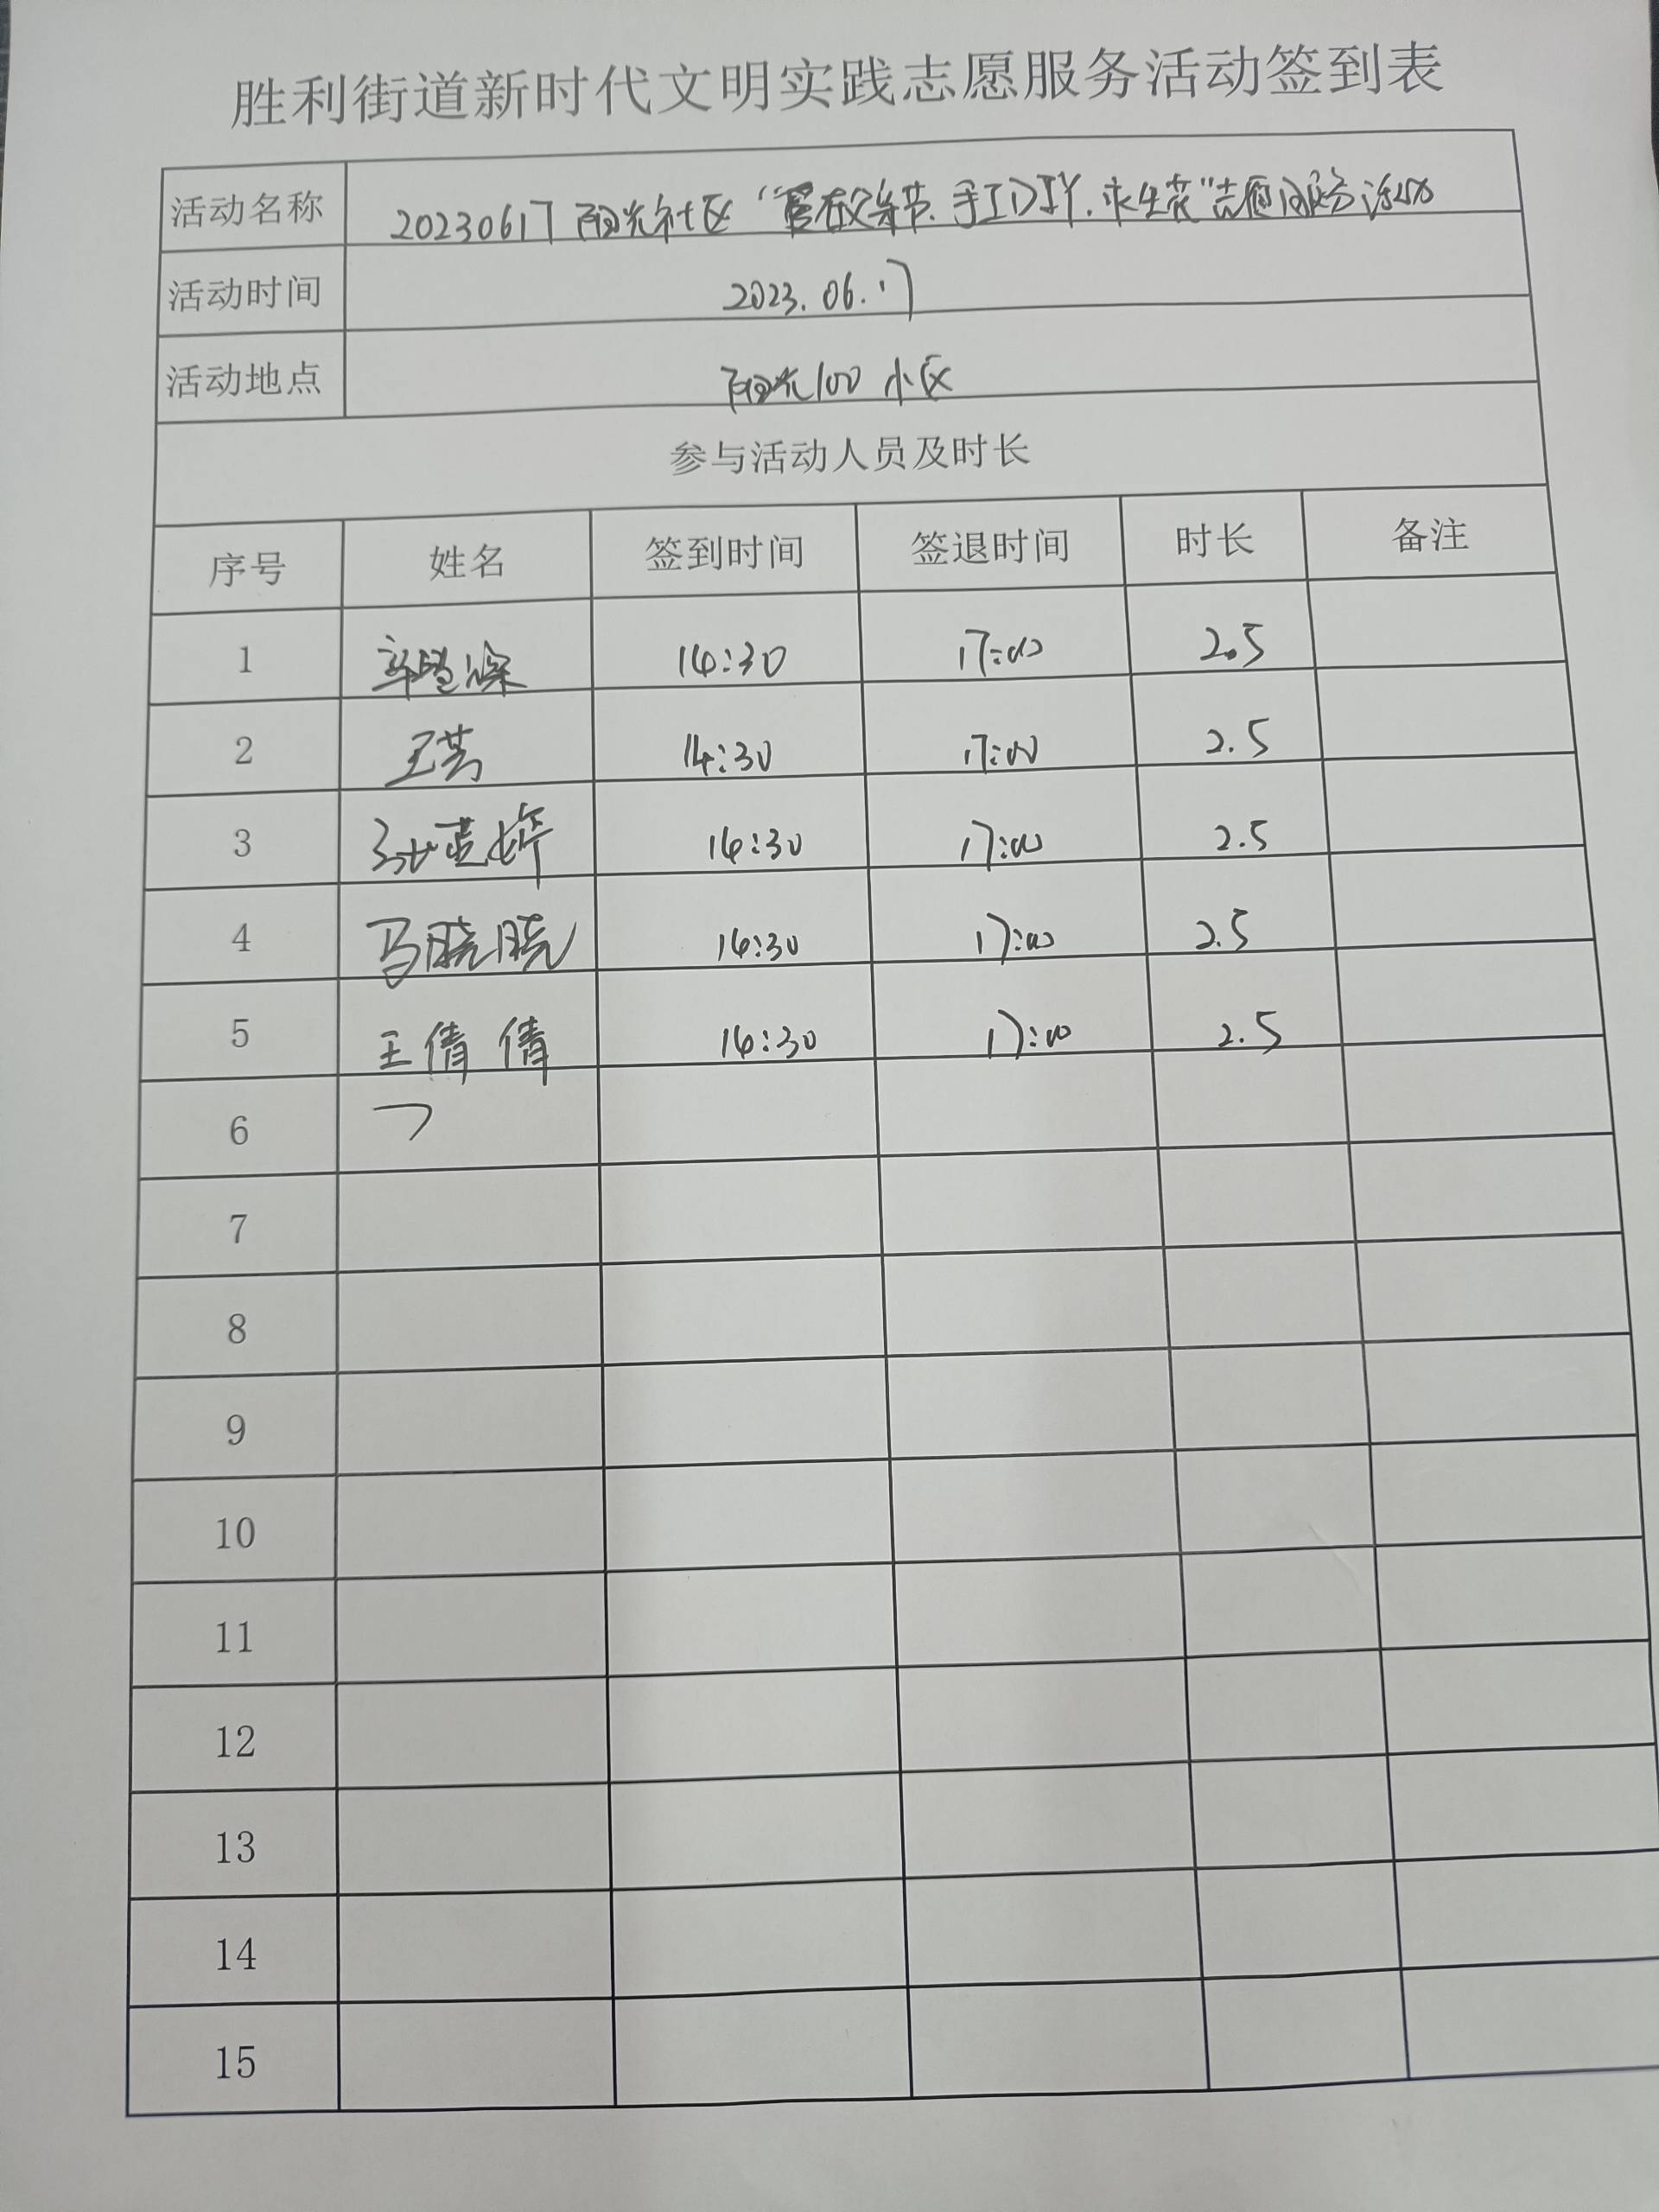 胜利街道新时代文明实践志愿服务活动签到表
活动名称 20230617 阳光社区“ 父亲节、手工DIY、永生花”志愿服务活动
活动时间 2023.06.17
活动地点 阳光100 小区
参与活动人员及时长
序号 姓名 签到时间 签退时间 时长 备注
1 14:30 17:00 2.5
2 王芸 14:30 17:00 2.5
3 14:30 17:00 2.5
4 马晓晓 14:30 17:00 2.5
5 王倩倩 14:30 17:00 2.5
6
7
8
9
10
11
12
13
14
15